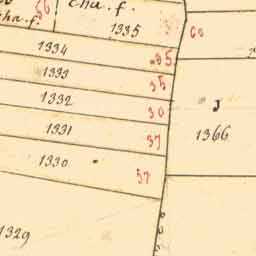 56
cha. f. cha. f.
1335 60
1334 35
1333 35
1332 30
J
1331 37
1366
1330 57
1329